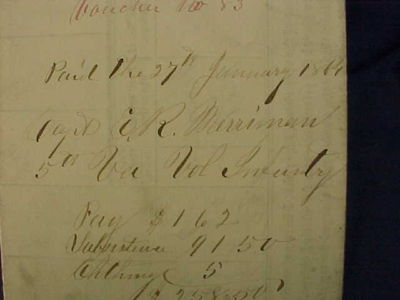 Voucher No 83
Paid the 27th January 1864
Capt E.R. Merriman
5th Va Vol Infanty
Pay $162
Subsistence 91 50
Clothing 5
$258.50